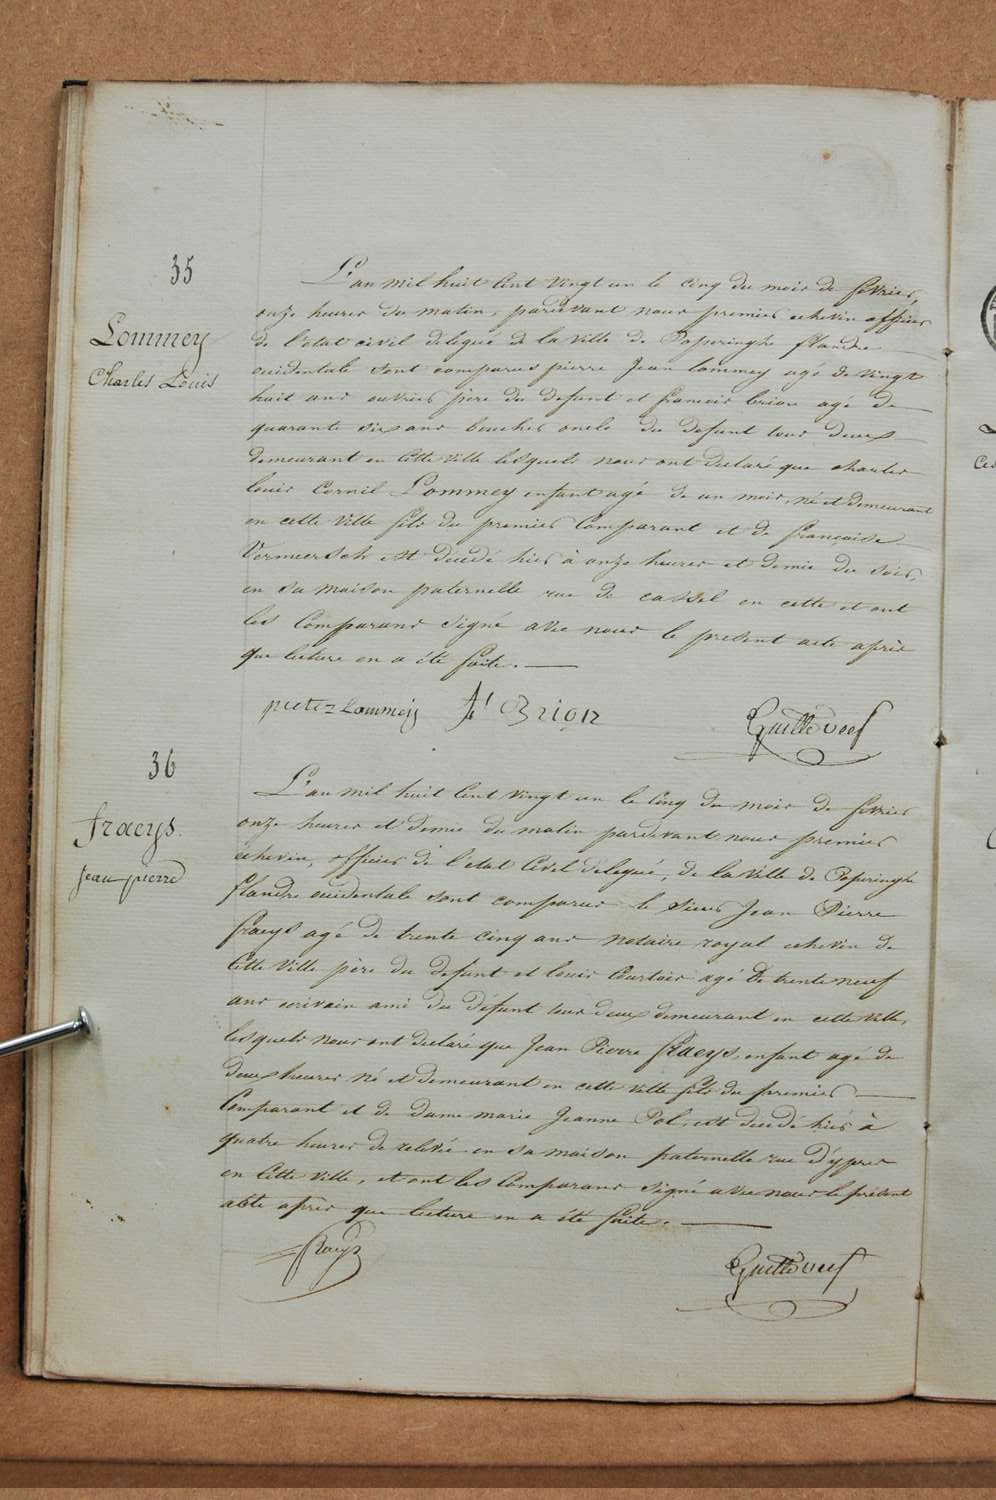 35
Lommey
Charles Louis
L'an mil huit cent vingt un le cinq du mois de fevrier,
onze heures du matin, pardevant nous premier echevin officier
de l'etat civil delegué de la ville de Poperinghe flandre
occidentale sont comparus pierre Jean lommey agé de vingt
huit ans ouvrier père du defunt et francois brion agé de
quarante six ans boucher oncle du defunt tous deux
demeurant en cette ville lesquels nous ont declaré que charles
louis Cornil Lommey enfant agé de un mois, né et demeurant
en cette ville fils du premier Comparant et de françoise
Vermeersch est décédé hier à onze heures et demie du soir,
en sa maison paternelle rue de cassel en cette et ont
les Comparans signé avec nous le présent acte après
que lecture en a été faite.
pieter Lommeij Brion
36
fraeys.
jean pierre
L'an mil huit cent vingt un le cinq du mois de fevrier
onze heures et demie du matin pardevant nous premier
échevin, officier de l'état Civil délegué, de la Ville de Poperinghe
flandre occidentale sont comparus le sieur Jean Pierre
fraeys agé de trente cinq ans notaire royal echevin de
cette ville père du defunt et louis Courtois agé de trente neuf
ans ecrivain ami du defunt tous deux demeurant en cette ville,
lesquels nous ont declaré que Jean Pierre fraeys, enfant agé de
deux heures né et demeurant en cette ville fils du premier
Comparant et de dame marie Jeanne Pol, est décédé hier à
quatre heures de relevée en sa maison paternelle rue d'ypres
en cette ville, et ont les Comparans signé avec nous le présent
acte après que lecture en a été faite.
fraeys